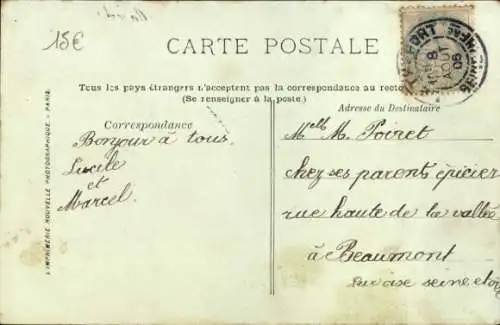 15€
CARTE POSTALE
Tous les pays étrangers n'acceptent pas la correspondance au recto
(Se renseigner à la poste.)
Correspondance
Bonjour à tous.
Lucile
et
Marcel.
Adresse du Destinataire
Melle M. Poiret
chez ses parents épicier
rue haute de la vallée
à Beaumont
sur oise seine et oise
L'IMPRIMERIE NOUVELLE PHOTOGRAPHIQUE - PARIS.
FORT
8
AOUT
05